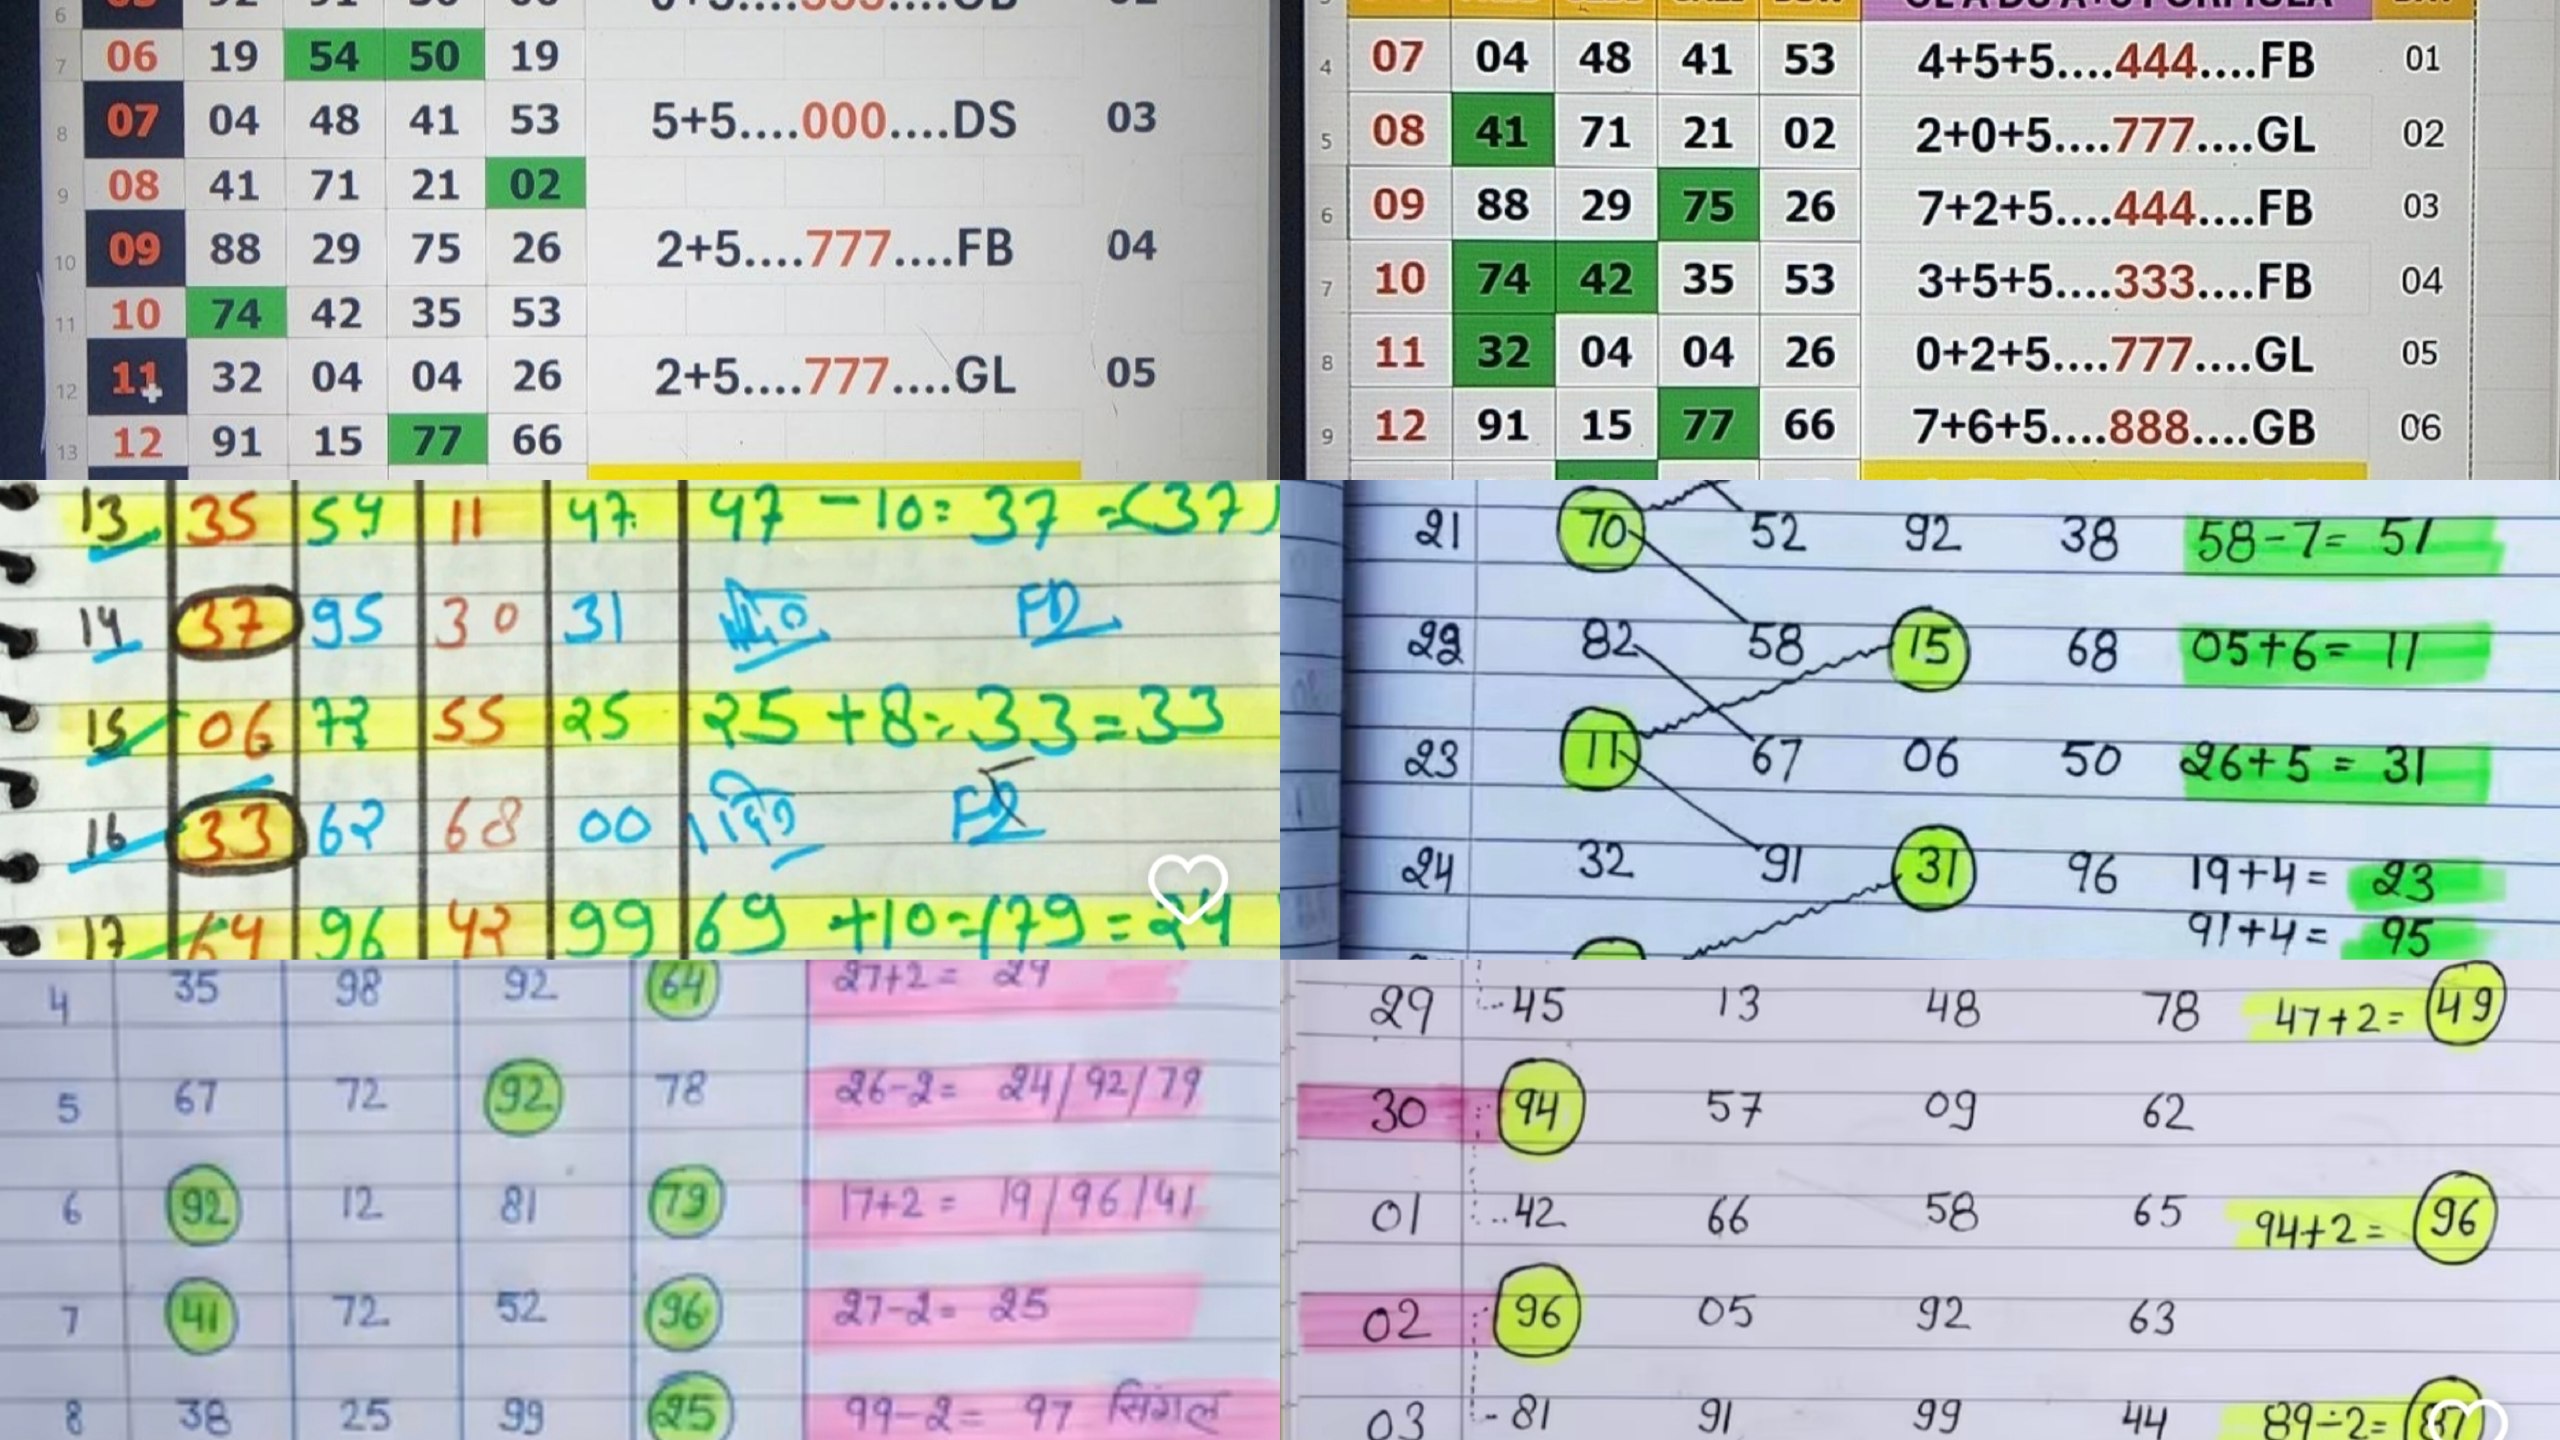 06 19 54 50 19
7
07 04 48 41 53 5+5....000....DS 03
8
08 41 71 21 02
9
09 88 29 75 26 2+5....777....FB 04
10
10 74 42 35 53
11
11 32 04 04 26 2+5....777....GL 05
12
12 91 15 77 66
13
4 07 04 48 41 53 4+5+5....444....FB 01
5 08 41 71 21 02 2+0+5....777....GL 02
6 09 88 29 75 26 7+2+5....444....FB 03
7 10 74 42 35 53 3+5+5....333....FB 04
8 11 32 04 04 26 0+2+5....777....GL 05
9 12 91 15 77 66 7+6+5....888....GB 06
13 35 54 11 47 47-10=37=(37)
14 37 95 30 31
15 06 72 55 25 25+8=33=33
16 33 62 68 00
17 64 96 42 99 69+10=(79=24
21 70 52 92 38 58-7= 51
22 82 58 15 68 05+6= 11
23 11 67 06 50 26+5= 31
24 32 91 31 96 19+4= 23
91+4= 95
4 35 98 92 64 27+2= 29
5 67 72 92 78 26-2= 24/92/79
6 92 12 81 79 17+2= 19/96/41
7 41 72 52 96 27-2= 25
8 38 25 99 25 99-2= 97 सिंगल
29 45 13 48 78 47+2= 49
30 94 57 09 62
01 42 66 58 65 94+2= 96
02 96 05 92 63
03 81 91 99 44 89÷2= 87